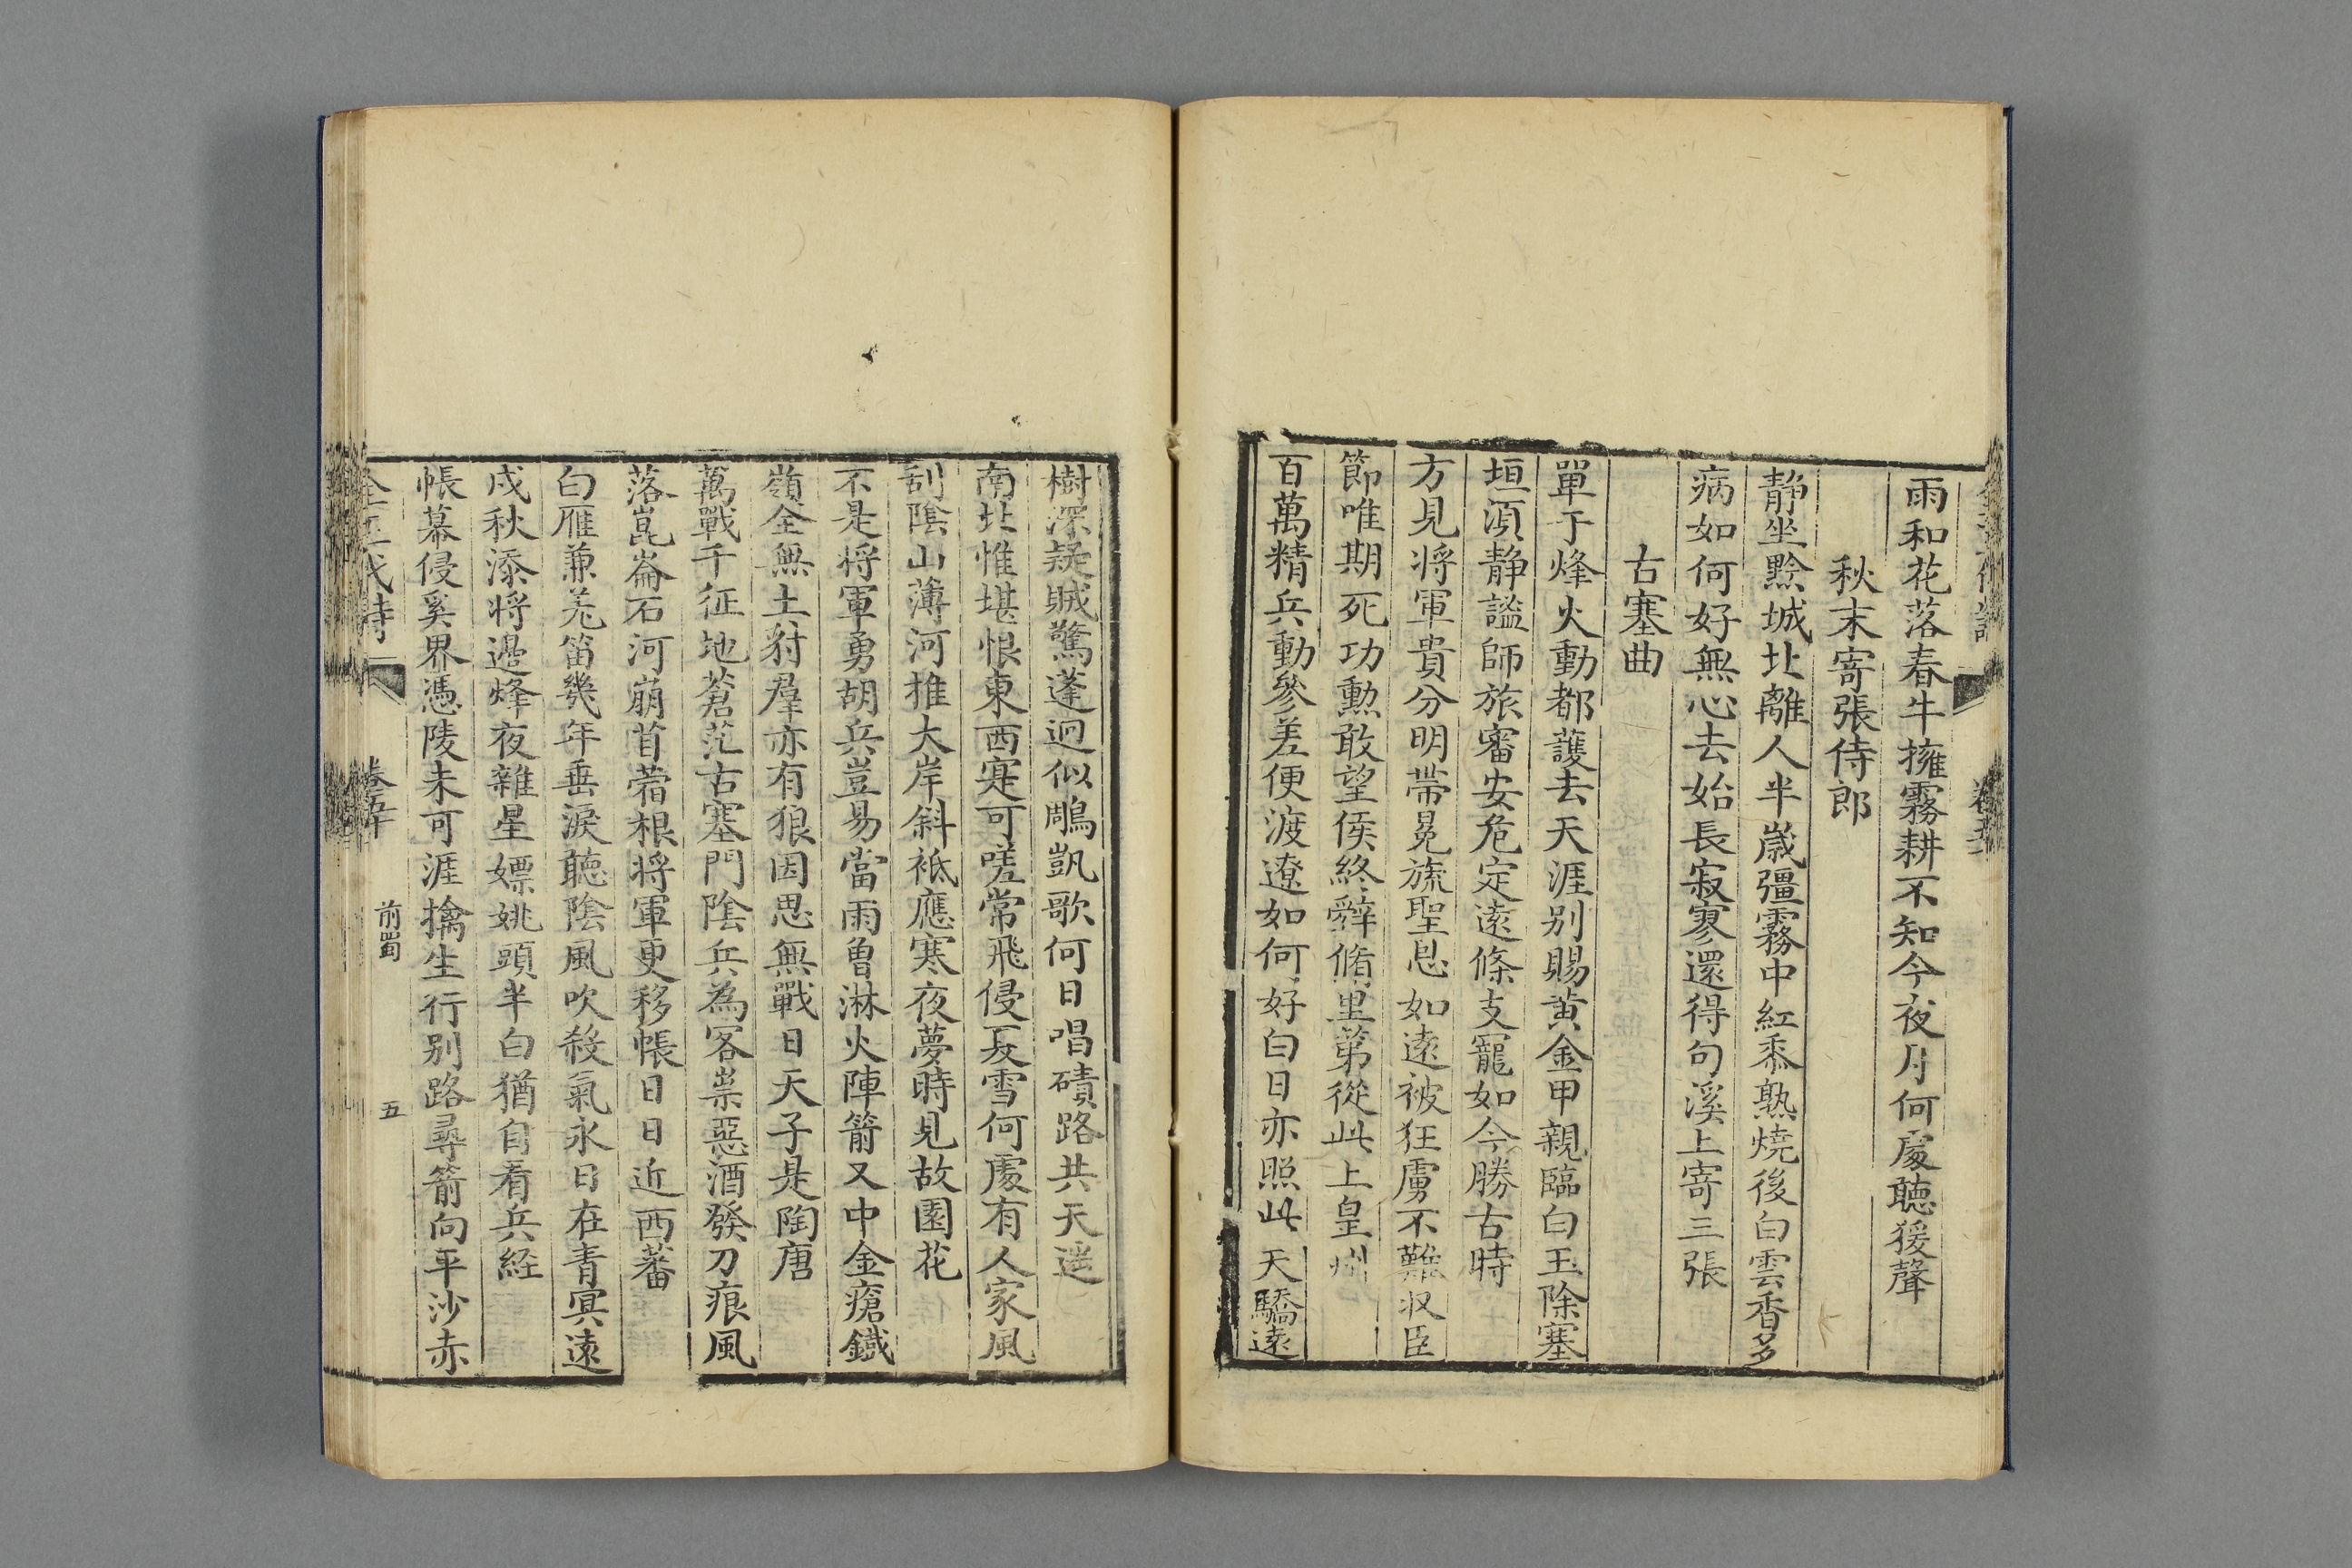 雨和花落春牛擁霧耕不知今夜月何處聽猨聲
秋末寄張侍郎
靜坐黔城北離人半歲彊霧中紅黍熟燒後白雲香多
病如何好無心去始長寂寥還得句溪上寄三張
古塞曲
單于烽火動都護去天涯别賜黄金甲親臨白玉除塞
垣須靜謐師旅審安危定遠條支寵如今勝古時
方見將軍貴分明帶冕旒聖恩如遠被狂虜不難收臣
節唯期死功勲敢望侯終辭脩里第從此上皇州
百萬精兵動參差便渡遼如何好白日亦照此天驕遠
樹深疑賊驚蓬迥似鵰凱歌何日唱磧路共天遥
南北惟堪恨東西寔可嗟常飛侵夏雪何處有人家風
刮陰山薄河推大岸斜祗應寒夜夢時見故園花
不是將軍勇胡兵豈易當雨曾淋火陣箭又中金瘡鐵
嶺全無土豺羣亦有狼因思無戰日天子是陶唐
萬戰千征地蒼茫古塞門陰兵為客祟惡酒發刀痕風
落崑崙石河崩苜蓿根將軍更移帳日日近西蕃
白雁兼羌笛幾年垂淚聽陰風吹殺氣永日在青冥遠
戍秋添將邊烽夜雜星嫖姚頭半白猶自看兵經
帳幕侵奚界憑陵未可涯擒生行别路尋箭向平沙赤
全五代詩 卷五十 前蜀 五